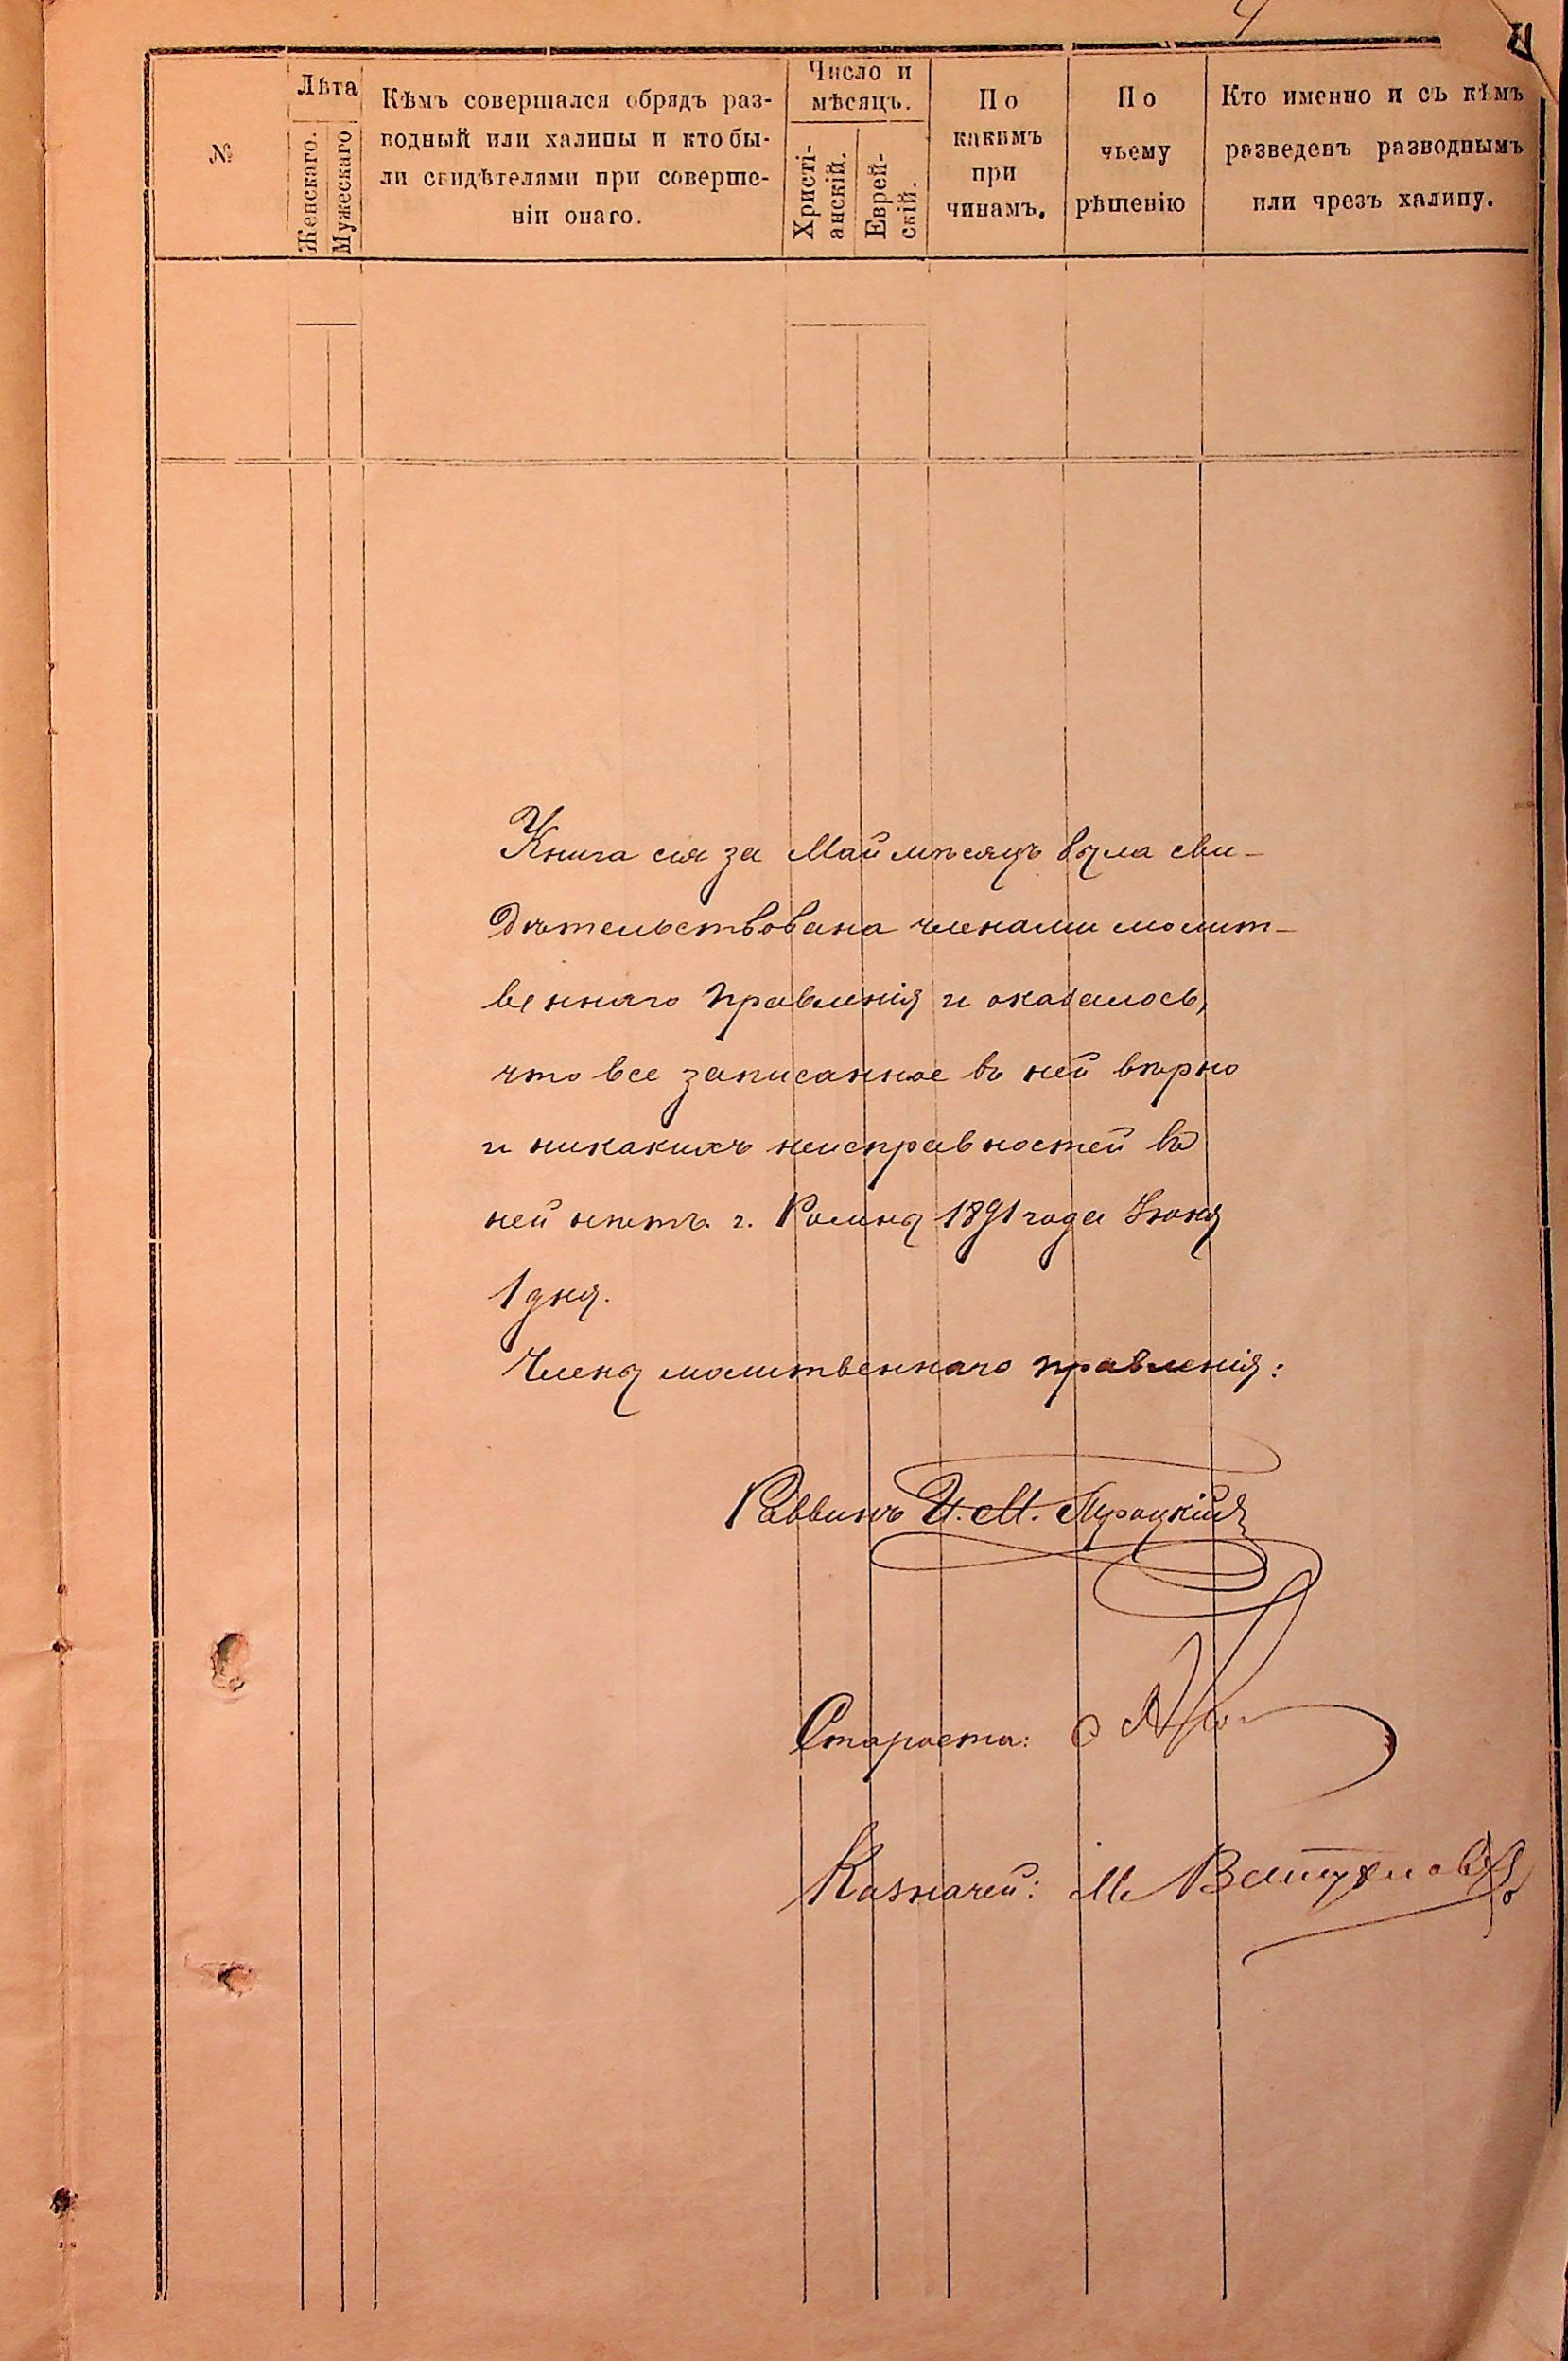 4
№
Лѣта
Женскаго.
Мужескаго
Кѣмъ совершался обрядъ раз-
водный или халицы и кто бы-
ли свидѣтелями при соверше-
ніи онаго.
Число и
мѣсяцъ.
Христі-
анскій.
Еврей-
скій.
По
какимъ
при
чинамъ.
По
чьему
рѣшенію
Кто именно и съ кѣмъ
разведенъ разводнымъ
или чрезъ халицу.
Книга сія за Май мѣсяцъ была сви-
дѣтельствована членами молит-
веннаго правленія и оказалось,
что все записанное въ ней вѣрно
и никакихъ неисправностей въ
ней нѣтъ. г. Ромны 1891 года Іюня
1 дня.
Члены молитвеннаго правленія:
Раввинъ И. М. Троцкій
Староста:
Казначей: М